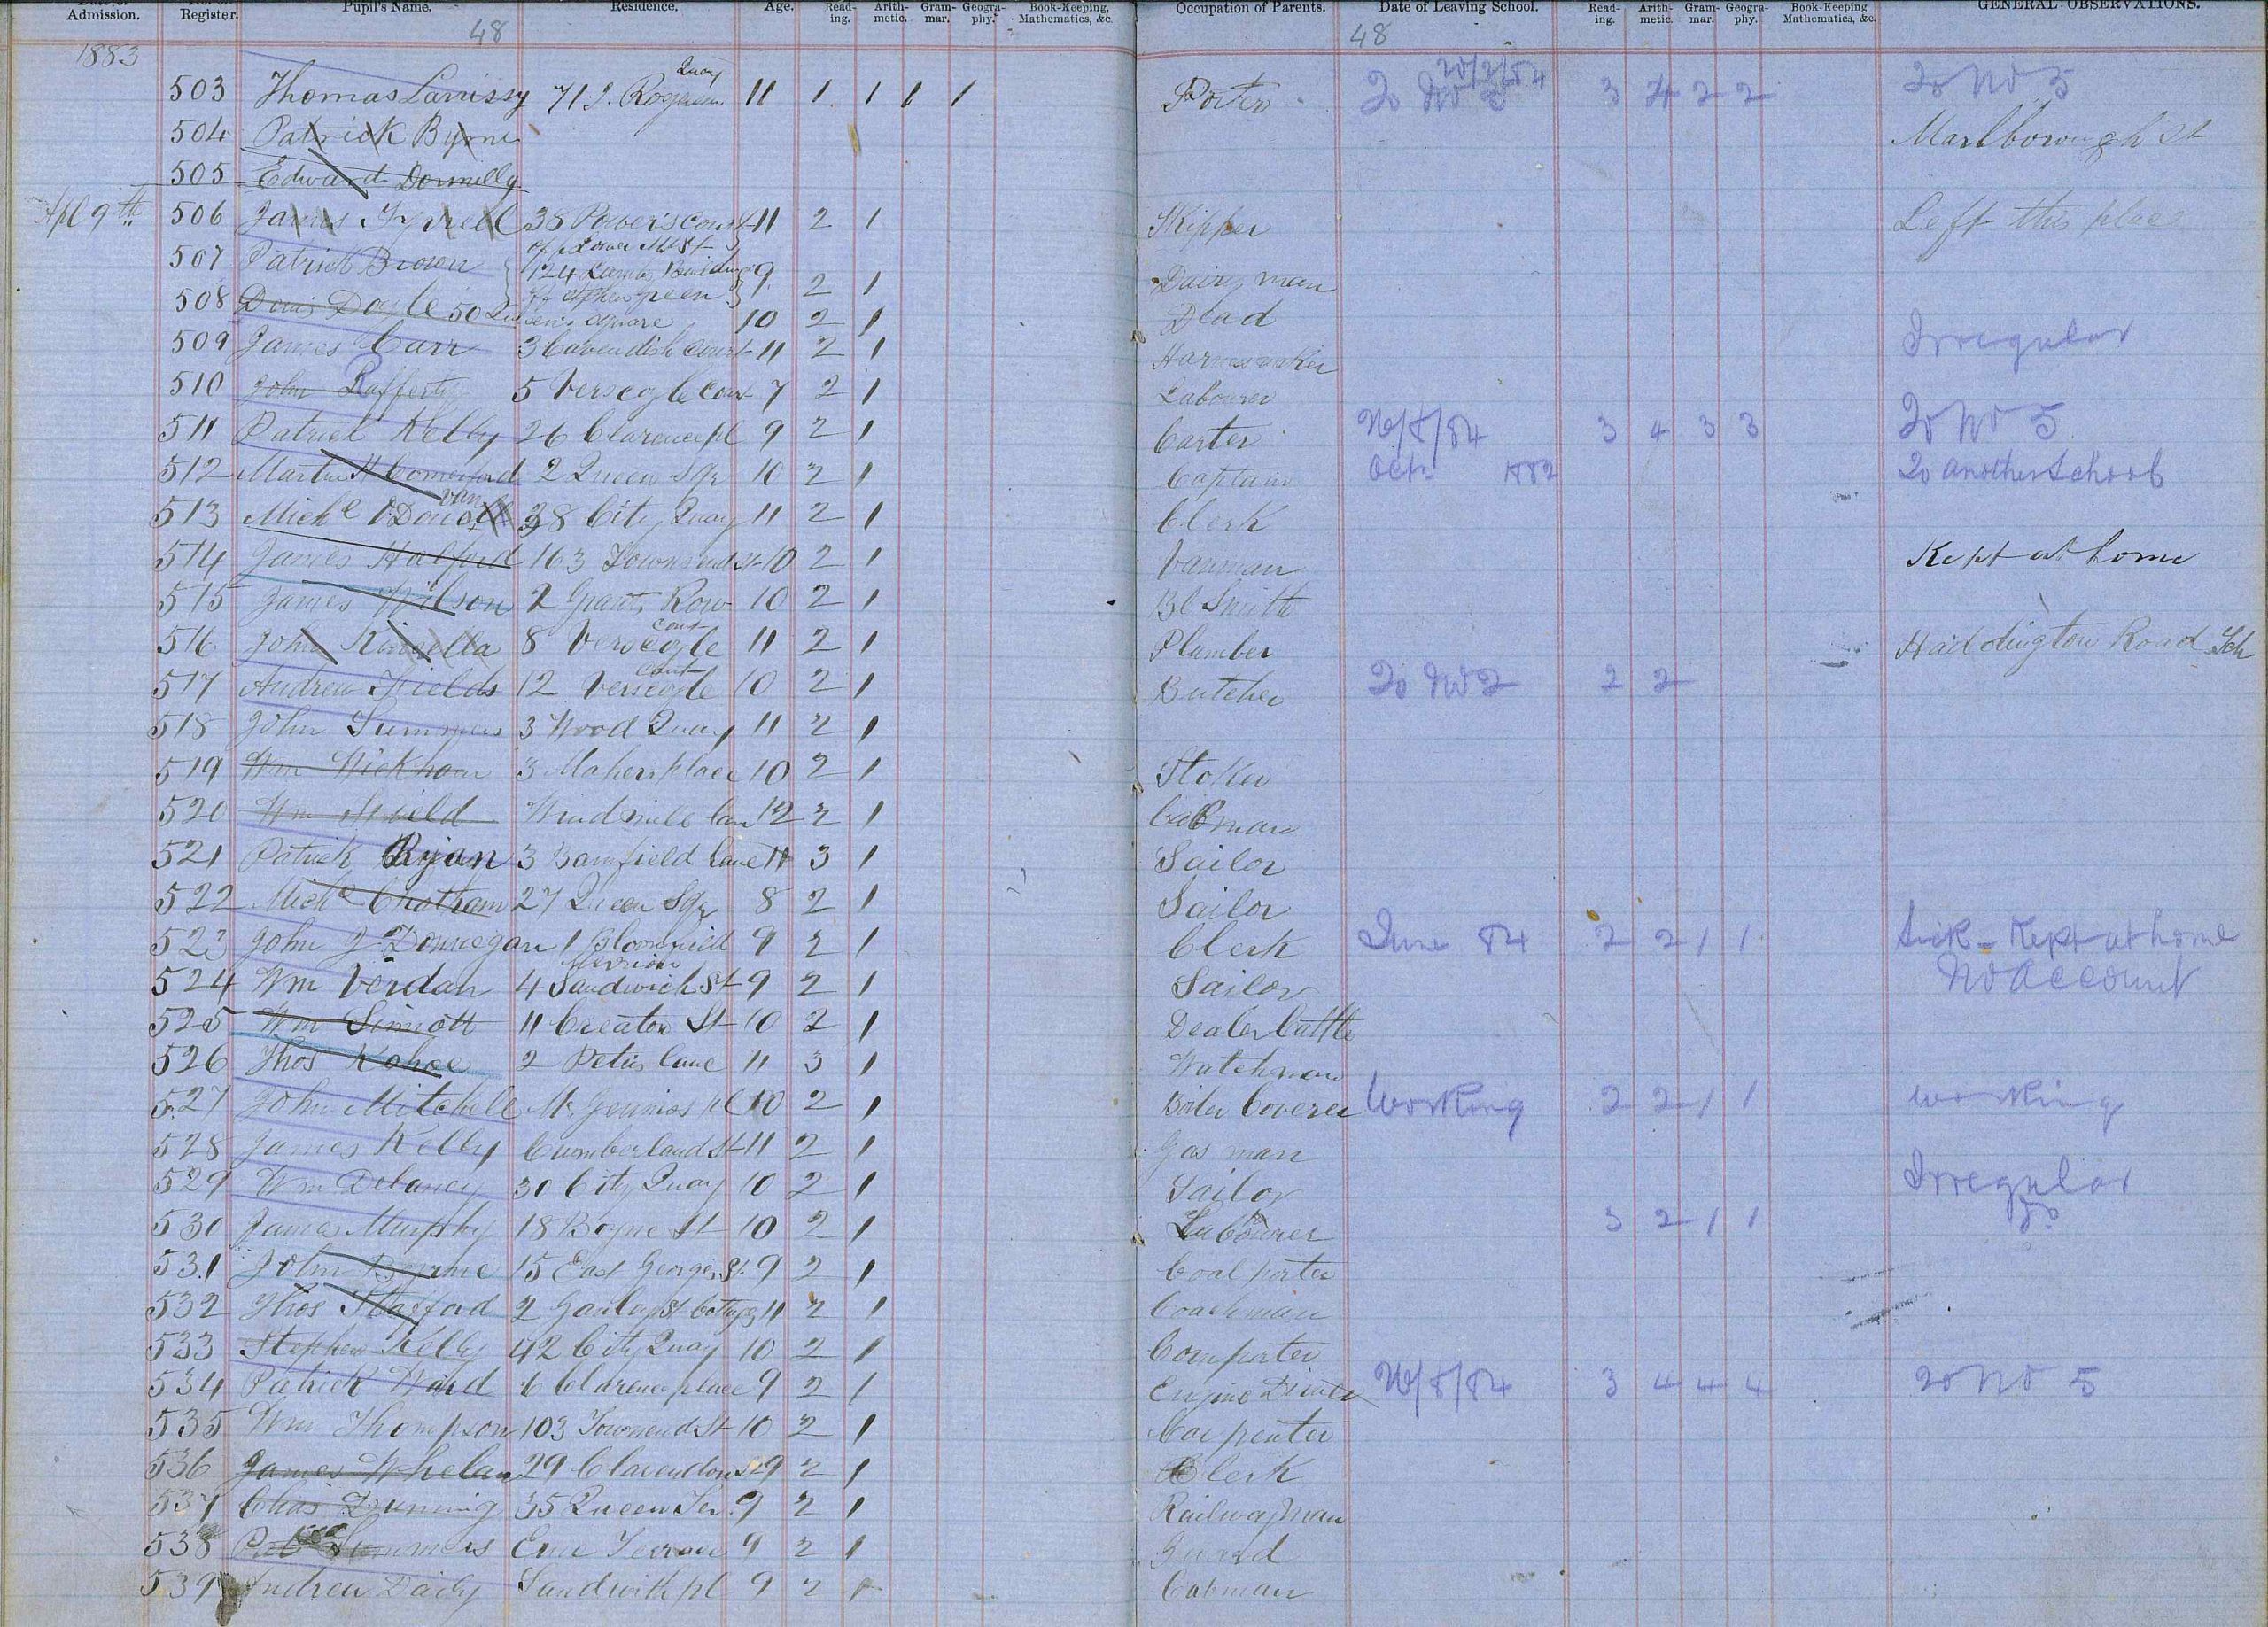 Date of Admission. No. on Register. Pupil's Name. Residence. Age. Read-ing. Arith-metic. Gram-mar. Geogra-phy. Book-Keeping, Mathematics, &c. Occupation of Parents. Date of Leaving School. Read-ing. Arith-metic. Gram-mar. Geogra-phy. Book-Keeping Mathematics, &c. GENERAL OBSERVATIONS.
48 48
1883
503 Thomas Larrissy 71 J. Rogerson Quay 11 1 1 1 1 Porter To No 5 20/2/84 3 4 2 2 To No 5
504 Patrick Byrne Marlborough St
505 Edward Donnelly
Apl 9th 506 James Tyrrell 38 Power's Court off Lower Mt St 11 2 1 Skipper Left this place
507 Patrick Brown 124 Lambs Buildings St Stephen Green 9 2 1 Dairy man
508 Denis Doyle 50 Queen's Square 10 2 1 Dead
509 James Carr 3 Cavendish Court 11 2 1 Harnessmaker Irregular
510 John Rafferty 5 Verscoyle Court 7 2 1 Labourer
511 Patrick Kelly 26 Clarence pl 9 2 1 Carter /8/84 3 4 3 3 To No 5
512 Martin H Comerford 2 Queen Sqr 10 2 1 Captain Octr 1882 To another School
513 Michl O'Donovan 38 City Quay 11 2 1 Clerk
514 James Halford 163 Townsend St 10 2 1 Vanman Kept at home
515 James Wilson 2 Grants Row 10 2 1 Bl Smith
516 John Kinsella 8 Verscoyle Court 11 2 1 Plumber Haddington Road Sch
517 Andrew Fields 12 Verscoyle Court 10 2 1 Butcher To No 2 2 2
518 John Summers 3 Wood Quay 11 2 1
519 Wm Wickham 3 Mahers place 10 2 1 Stoker
520 Wm Windmill lane 12 2 1 Cabman
521 Patrick Ryan 3 Bamfield lane 11 3 1 Sailor
522 Michl Chatham 27 Queen Sqr 8 2 1 Sailor
523 John J Donnegan 1 Bloomfield Merrion 9 2 1 Clerk June 84 2 2 1 1 Sick - Kept at home
524 Wm Verdan 4 Sandwich St 9 2 1 Sailor No account
525 Wm Sinnott 11 Creaton St 10 2 1 Dealer Cattle
526 Thos Kehoe 2 Peters lane 11 3 1 Watchman
527 John Mitchell Mc Gennis pl 10 2 1 Boiler Coverer Working 2 2 1 1 working
528 James Kelly Cumberland St 11 2 1 Gas man
529 Wm Delaney 30 City Quay 10 2 1 Sailor Irregular
530 James Murphy 18 Boyne St 10 2 1 Labourer 3 2 1 1 Do
531 John Byrne 15 East Georges St 9 2 1 Coal porter
532 Thos Stafford 2 St Cottages 11 2 1 Coachman
533 Stephen Kelly 42 City Quay 10 2 1
534 Patrick Ward 6 Clarence place 9 2 1 Engine Driver /8/84 3 4 4 4 To No 5
535 Wm Thompson 103 Townsend St 10 2 1 Carpenter
536 James Whelan 29 Clarendon St 9 2 1 Clerk
537 Chas Dunning 35 Queen Ter. 9 2 1 Railwayman
538 Summers Erne Terrace 9 2 1 Guard
539 Andrew Daily Sandwith pl 9 2 1 Cabman